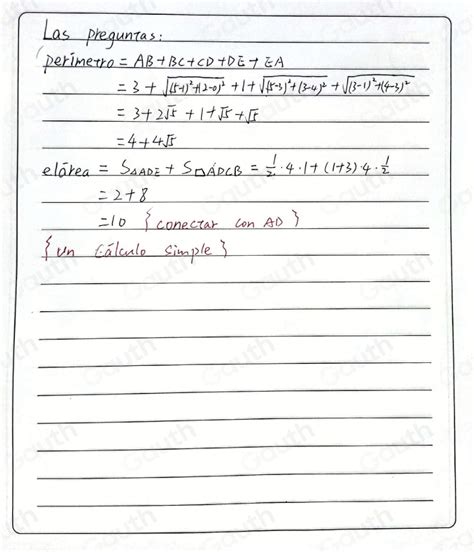 Las preguntas:
perímetro = AB+BC+CD+DE+EA
= 3 + √((5-1)²+(2-0)²) + 1 + √((5-3)²+(3-4)²) + √((3-1)²+(4-3)²)
= 3+2√5 + 1+√5+√5
= 4+4√5
el área = S△ADE + S□ADCB = 1/2·4·1 + (1+3)·4·1/2
= 2+8
= 10 { conectar con AD }
{ un Cálculo simple }